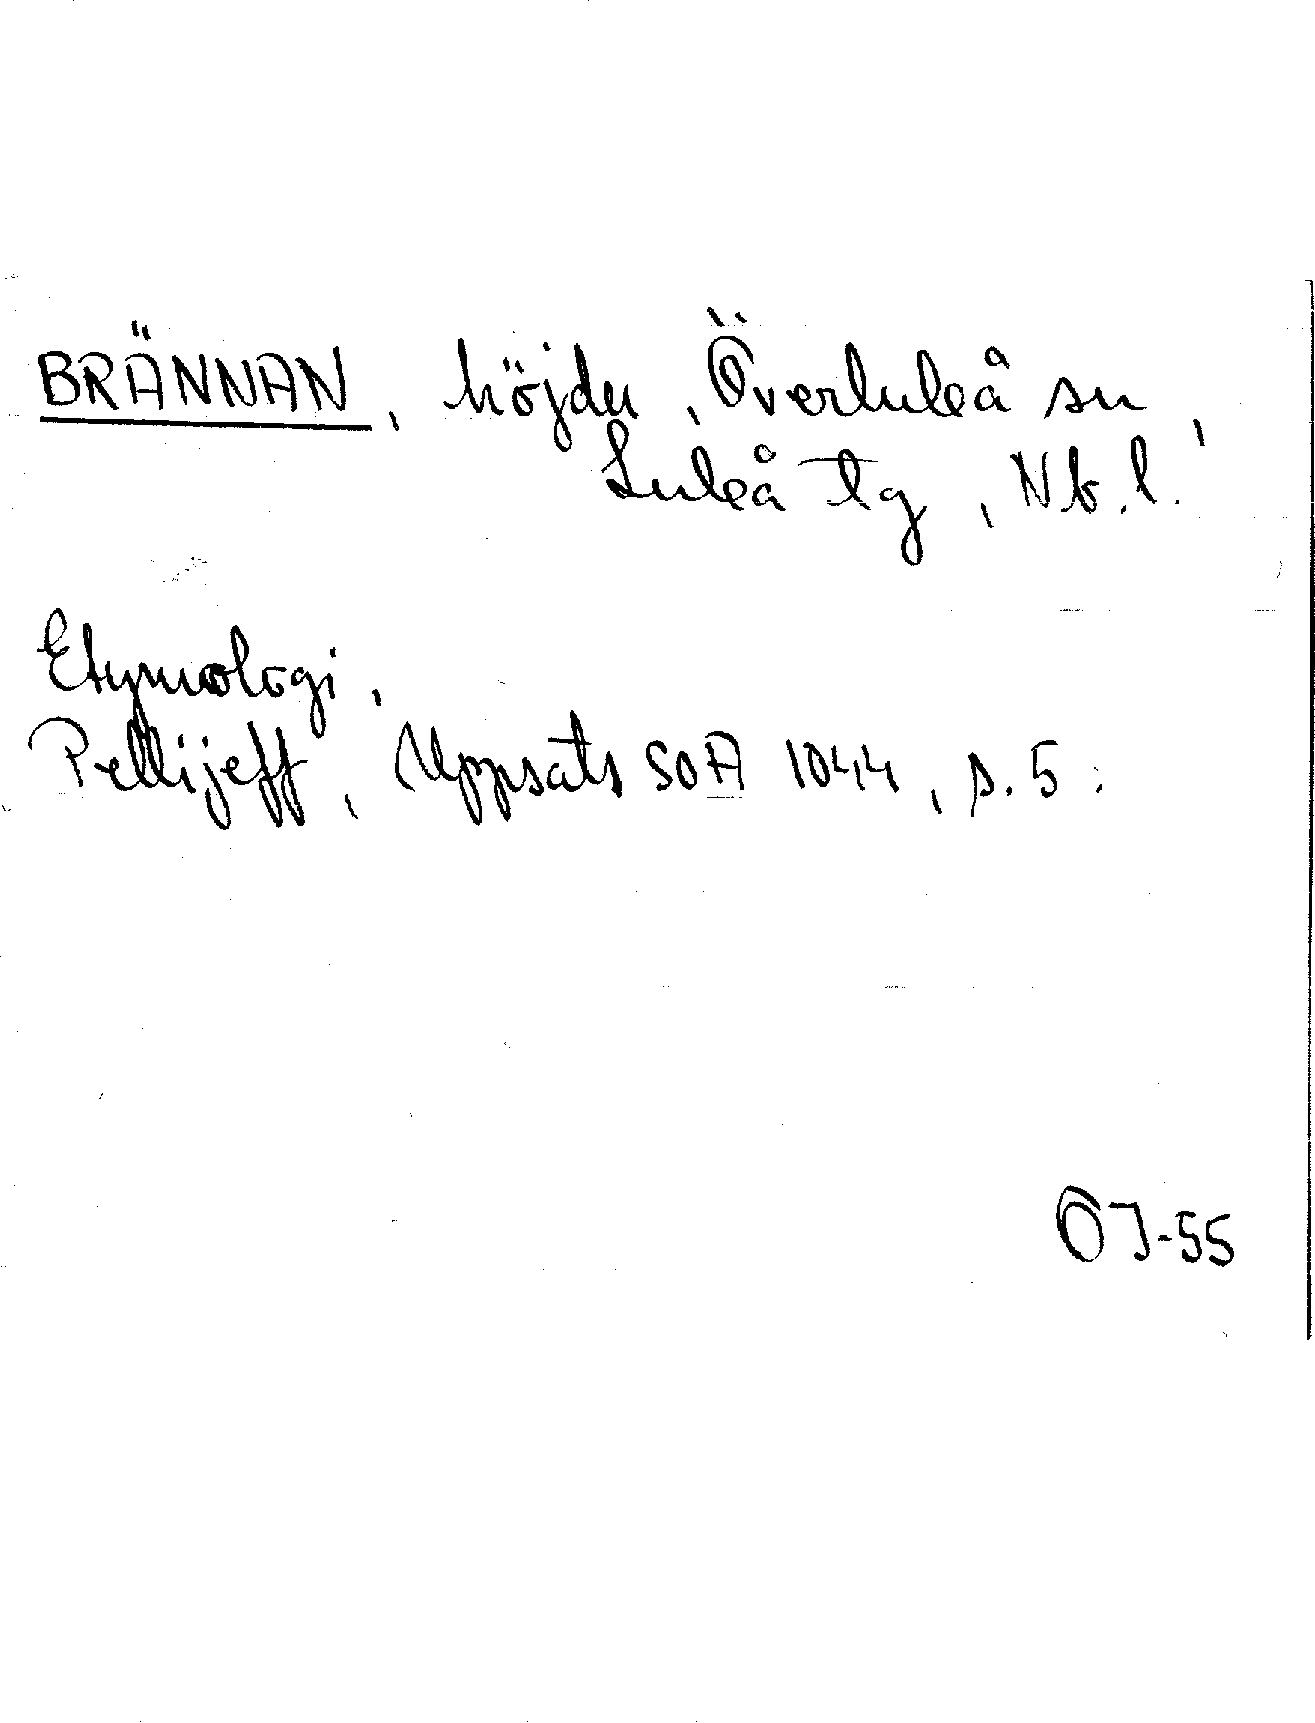 BRÄNNAN, höjdn, Överluleå sn,
Luleå tg, Nb. l.
Etymologi,
Pellijeff, Uppsats SOA 1044, s. 5.
ÖJ-55